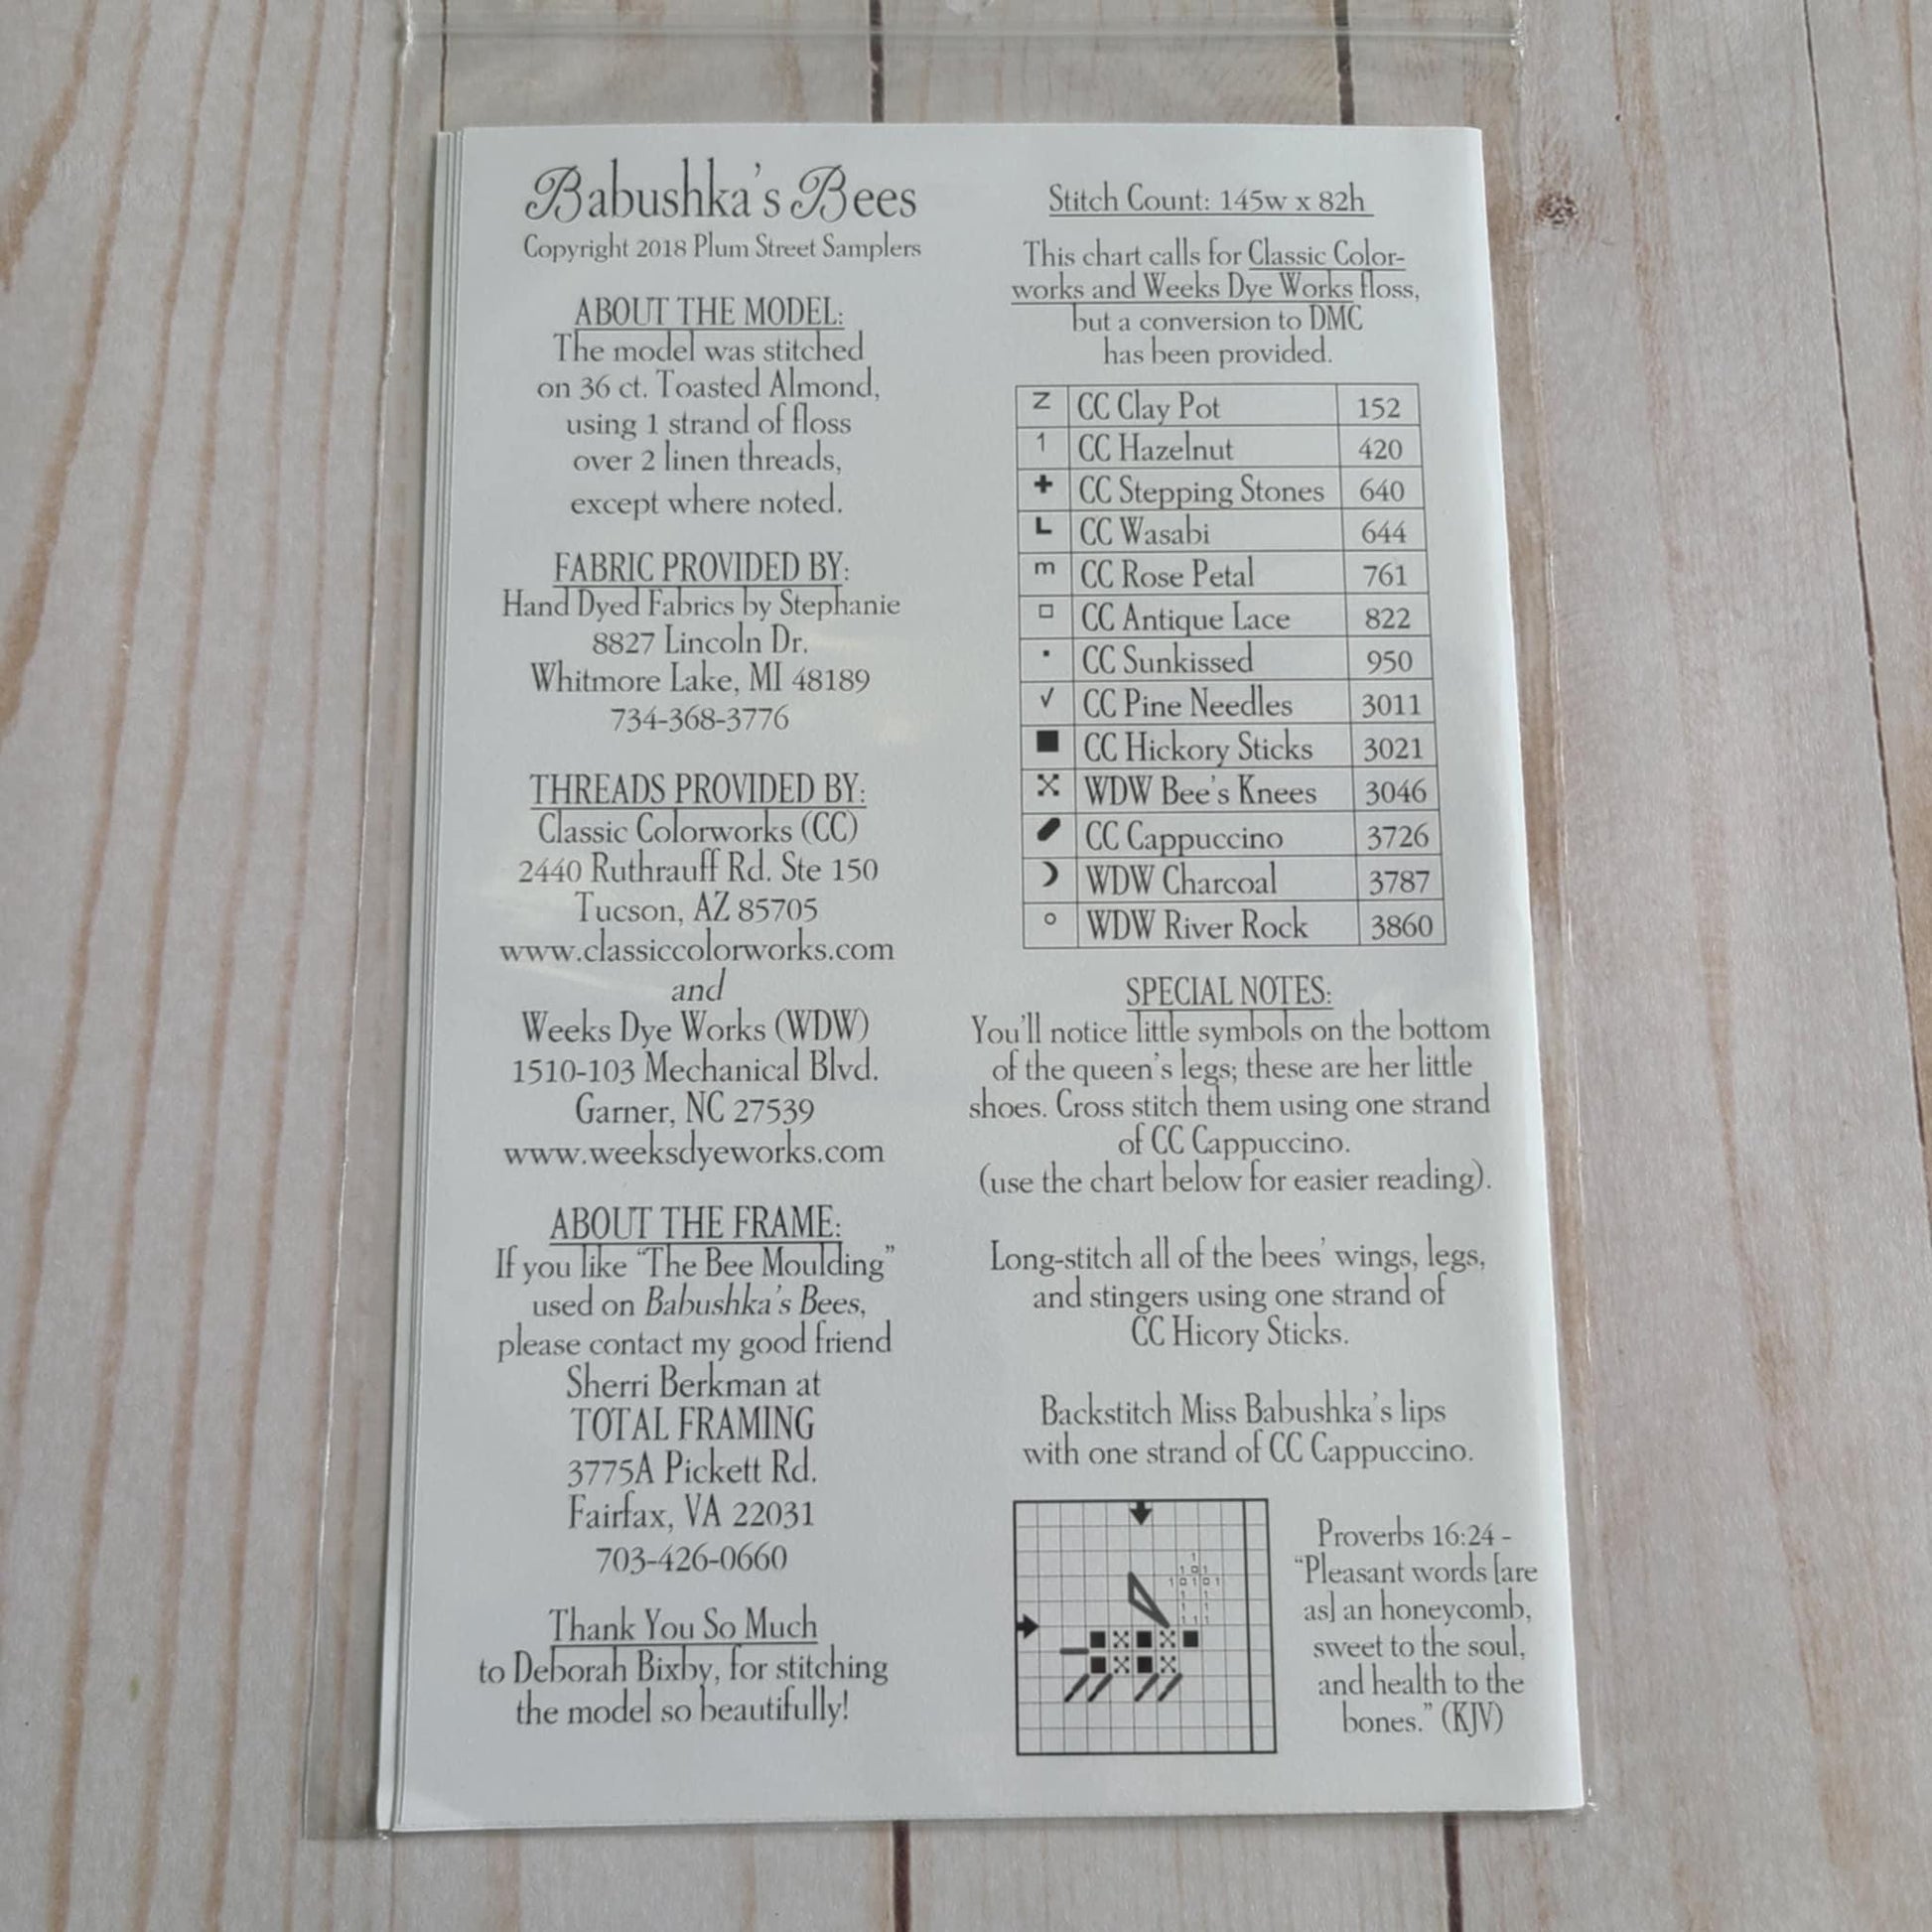 Babushka's Bees
Copyright 2018 Plum Street Samplers
ABOUT THE MODEL:
The model was stitched
on 36 ct. Toasted Almond,
using 1 strand of floss
over 2 linen threads,
except where noted.
FABRIC PROVIDED BY:
Hand Dyed Fabrics by Stephanie
8827 Lincoln Dr.
Whitmore Lake, MI 48189
734-368-3776
THREADS PROVIDED BY:
Classic Colorworks (CC)
2440 Ruthrauff Rd. Ste 150
Tucson, AZ 85705
www.classiccolorworks.com
and
Weeks Dye Works (WDW)
1510-103 Mechanical Blvd.
Garner, NC 27539
www.weeksdyeworks.com
ABOUT THE FRAME:
If you like "The Bee Moulding"
used on Babushka's Bees,
please contact my good friend
Sherri Berkman at
TOTAL FRAMING
3775A Pickett Rd.
Fairfax, VA 22031
703-426-0660
Thank You So Much
to Deborah Bixby, for stitching
the model so beautifully!
Stitch Count: 145w x 82h
This chart calls for Classic Color-
works and Weeks Dye Works floss,
but a conversion to DMC
has been provided.
Z CC Clay Pot 152
1 CC Hazelnut 420
✚ CC Stepping Stones 640
L CC Wasabi 644
m CC Rose Petal 761
□ CC Antique Lace 822
▪ CC Sunkissed 950
√ CC Pine Needles 3011
■ CC Hickory Sticks 3021
WDW Bee's Knees 3046
CC Cappuccino 3726
WDW Charcoal 3787
○ WDW River Rock 3860
SPECIAL NOTES:
You'll notice little symbols on the bottom
of the queen's legs; these are her little
shoes. Cross stitch them using one strand
of CC Cappuccino.
(use the chart below for easier reading).
Long-stitch all of the bees' wings, legs,
and stingers using one strand of
CC Hicory Sticks.
Backstitch Miss Babushka's lips
with one strand of CC Cappuccino.
Proverbs 16:24 -
"Pleasant words [are
as] an honeycomb,
sweet to the soul,
and health to the
bones." (KJV)